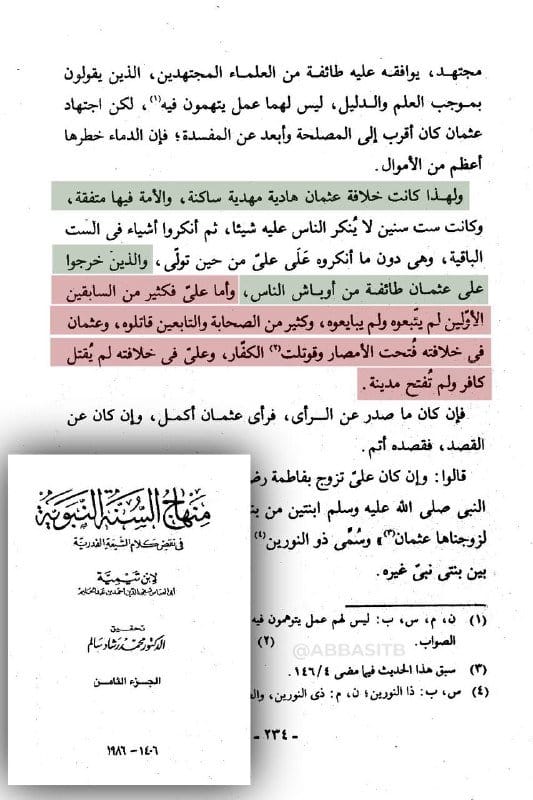 مجتهد، يوافقه عليه طائفة من العلماء المجتهدين، الذين يقولون
بموجب العلم والدليل، ليس لهما عمل يتهمون فيه(١)، لكن اجتهاد
عثمان كان أقرب إلى المصلحة وأبعد عن المفسدة؛ فإن الدماء خطرها
أعظم من الأموال.
ولهذا كانت خلافة عثمان هادية مهدية ساكنة، والأمة فيها متفقة،
وكانت ست سنين لا يُنكر الناس عليه شيئا، ثم أنكروا أشياء فى الست
الباقية، وهى دون ما أنكروه عَلَى علىّ من حين تولّى، والذين خرجوا
على عثمان طائفة من أوباش الناس، وأما علىّ فكثير من السابقين
الأوّلين لم يتّبعوه ولم يبايعوه، وكثير من الصحابة والتابعين قاتلوه، وعثمان
فى خلافته فُتحت الأمصار وقوتلت(٢) الكفّار، وعلىّ فى خلافته لم يُقتل
كافر ولم تُفتح مدينة.
فإن كان ما صدر عن الرأى، فرأى عثمان أكمل، وإن كان عن
القصد، فقصده أتم.
قالوا: وإن كان علىّ تزوج بفاطمة
النبى صلى الله عليه وسلم ابنتين من
لزوجناها عثمان(٣)» وسُمِّى ذو النورين(٤)
بين بنتى نبىّ غيره.
(١) ن، م، س، ب: ليس لهم عمل يتوهمون فيه
الصواب. (٢)
(٣) سبق هذا الحديث فيما مضى ١٤٦/٤.
(٤) س، ب: ذا النورين؛ ن، م: ذى النورين،
- ٢٣٤ -
@ABBASITB
منهاج السنة النبوية
فى نقض كلام الشيعة القدرية
لابن تيمية
أبى العباس تقى الدين أحمد بن عبد الحليم
تحقيق
الدكتور محمد رشاد سالم
الجزء الثامن
١٤٠٦ - ١٩٨٦